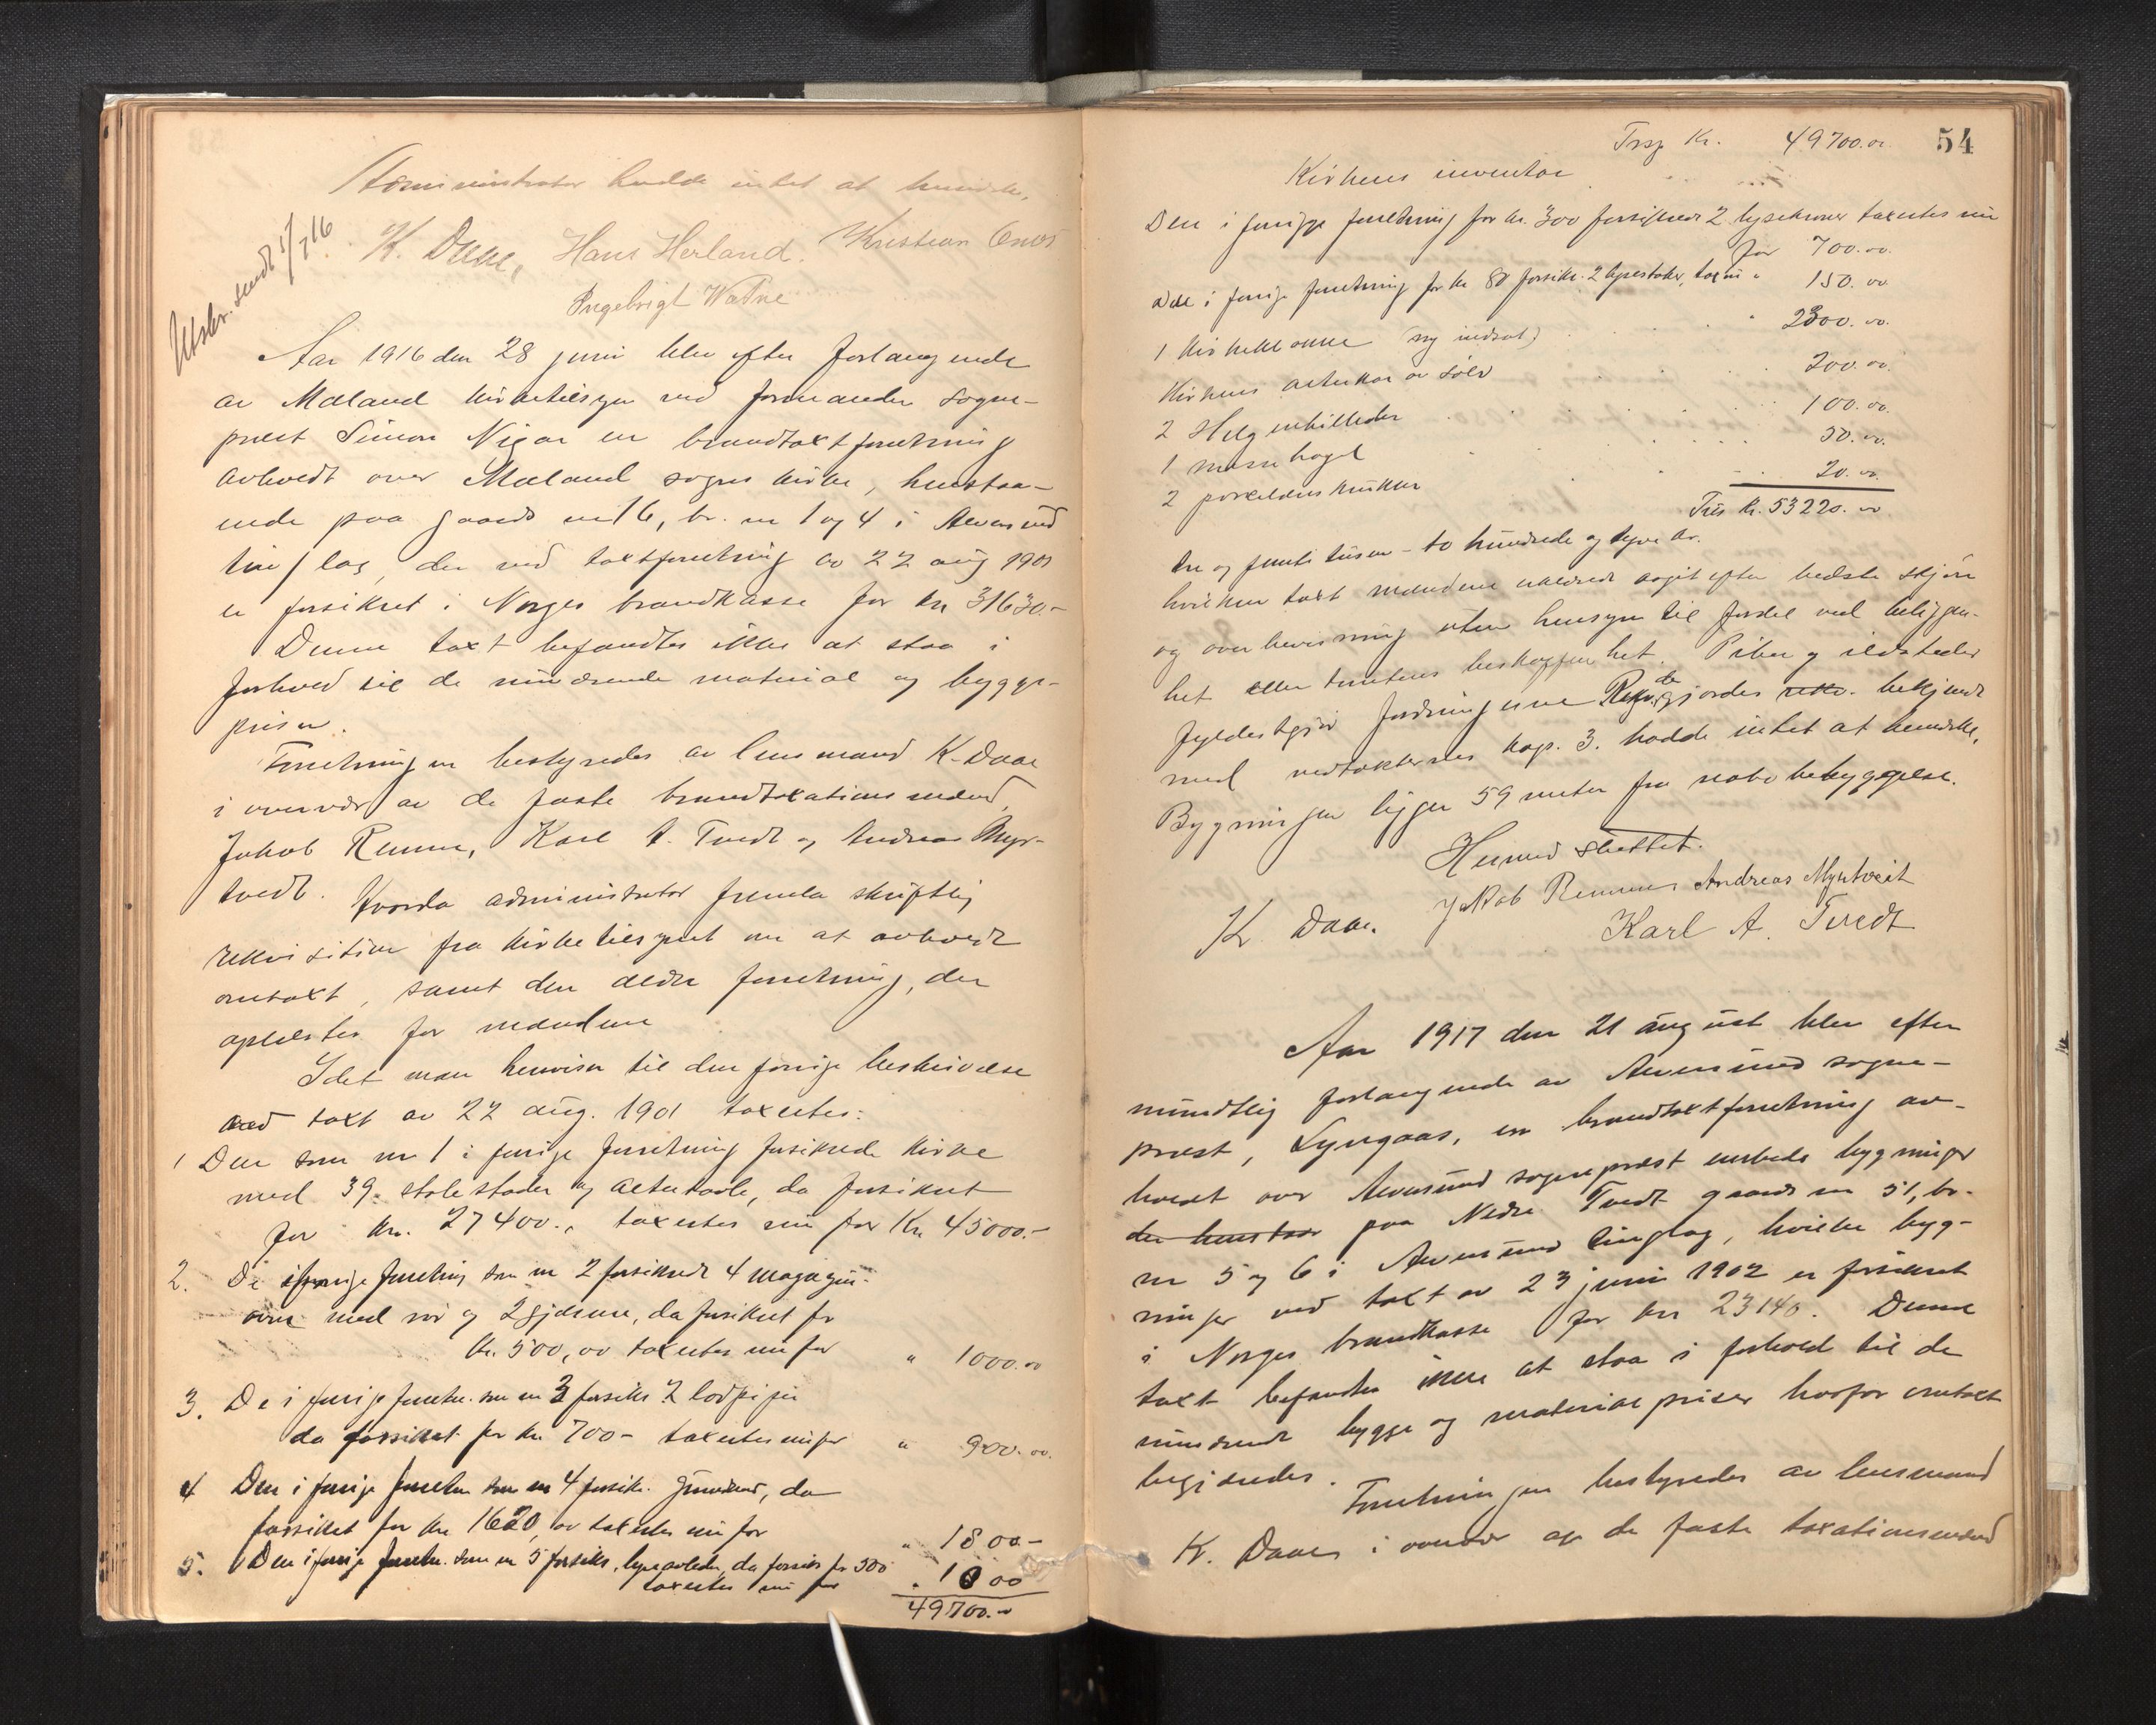 Administrator hadde intet at bemerke.
K. Daae, Hans Herland. Kristian
Ingebrigt Watne
Utskr. sendt 1/7 16
Aar 1916 den 28 juni blev efter forlangende
av Mæland kirketilsyn ved formanden sogne-
prest Simon en brandtaxtforretning
avholdt over Mæland sogns kirke, henstaa-
ende paa gaards nr 16, br. nr 1 og 4 i Alversund
tinglag, der ved taxtforretning av 22 aug 1901
er forsikret i Norges brandkasse for kr 31630.-
Denne taxt befandtes ikke at staa i
forhold til de nuværende material og bygge-
priser.
Forretningen bestyredes av lensmand K. Daae
i overvær av de faste brandtaxationsmænd,
Jakob Remme, Karl A. Tvedt og Andreas Myr-
tvedt. Hvorda administrator fremla skriftlig
rekvisition fra kirketilsynet om at avholdt
omtaxt, samt den ældre forretning, der
oplæstes for mændene
Idet man henviser til den forrige beskrivelse
ved taxt av 22 aug. 1901 taxertes:
1 Den som nr 1 i forrige forretning forsikrede kirke
med 39 stolestader og altertavle, da forsikret
for kr. 27400., taxertes nu for Kr 45000.-
2. De i forrige forretning som nr 2 forsikrede 4 magasin-
ovne med rør og 2 gjærme, da forsikret for
kr. 500,00 taxertes nu for " 1000.00
3. De i forrige forretn. som nr 3 forsikr. 2 lodpiper
da forsikret for kr 700- taxertes nu for " 900.00.
4 Den i forrige forretn som nr 4 forsikr. grundmur, da
forsikret for kr 1620,00 taxertes nu for " 1800-
5. Den i forrige forretn. som nr 5 forsikr. lynavleder, da forsikr for 500
taxertes nu for . 1000
49700.-
54
Trsp Kr. 49700.00
Kirkens inventar
Den i forrige forretning for kr. 300 forsikrede 2 lysekroner taxertes nu
for 700.00.
Die i forrige forretning for kr 80 forsikr. 2 lysestaker, tax nu " 150.00
1 kirkeklokke (ny indsat) " 2300.00.
Kirkens alterkar av sølv 200.00.
2 Helgenbilleder 100.00.
1 messehagel 50.00.
2 porcelænskrukker 20.00.
Tils kr. 53220.00
tre og femti tusen - to hundrede og tyve kr.
hvilken taxt mændene erklærede avgit efter bedste skjøn
og overbevisning uten hensyn til fordel ved beliggen-
het eller tomtens beskaffenhet. Piber og ildsteder
fyldestgjør fordringerne Rekv. gjordes rekv. bekjendt
med vedtækternes kap. 3. hadde intet at bemerke,
Bygningen ligger 59 meter fra nabobebyggelse.
Hermed sluttet.
K. Daae. Jakob Remmem Andreas Myrtveit
Karl A. Tvedt
Aar 1917 den 21 august blev efter
mundtlig forlangende av Alversund sogne-
prest, Lyngaas, en brandtaxtforretning av-
holdt over Alversund sogneprest embeds bygninger
der henstaar paa Nedre Tvedt gaards nr 51, br.
nr 5 og 6 i Alversund tinglag, hvilke byg-
ninger ved taxt av 23 juni 1902 er forsikret
i Norges brandkasse for kr 23140. Denne
taxt befandtes ikke at staa i forhold til de
nuværende bygge og materialpriser hvorfor omtaxt
begjæredes.
Forretningen bestyredes av lensmand
K. Daae i overvær av de faste taxationsmænd